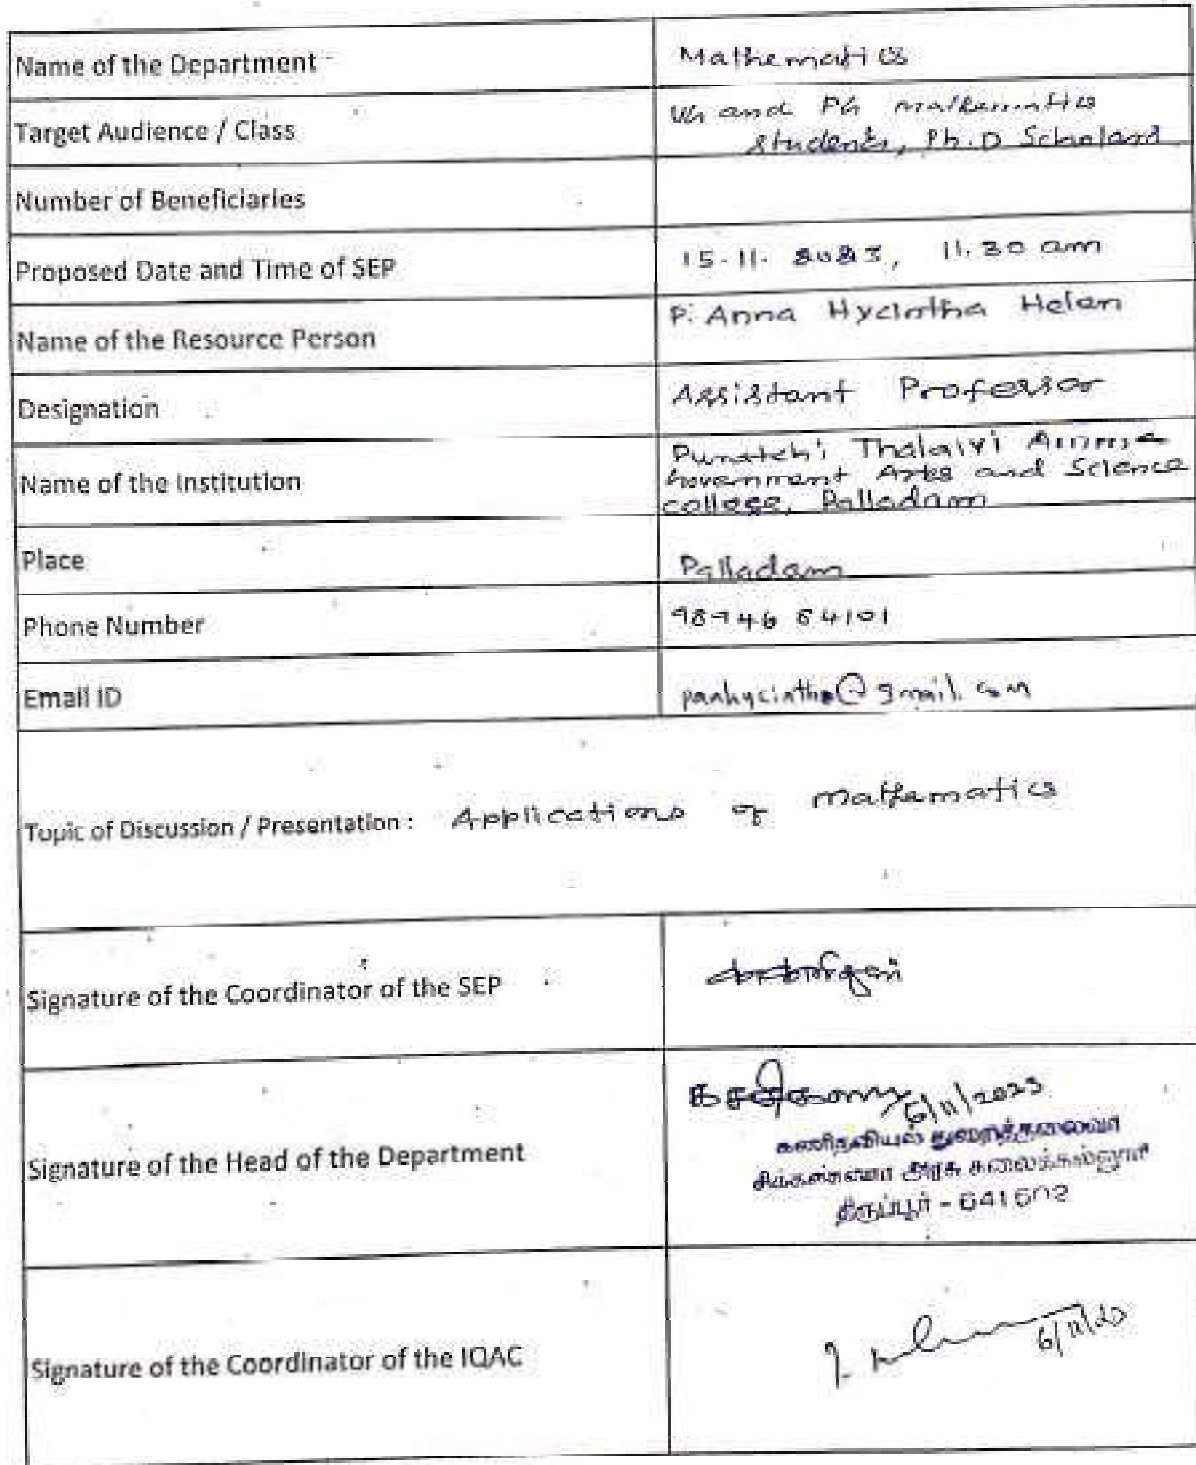 Name of the Department
Mathematics
Target Audience / Class
UG and PG mathematics
students, Ph.D Scholars
Number of Beneficiaries
Proposed Date and Time of SEP
15-11-2023, 11.30 am
Name of the Resource Person
P. Anna Hycintha Helen
Designation
Assistant Professor
Name of the Institution
Puratchi Thalaivi Amma
Government Arts and Science
college, Palladam
Place
Palladam
Phone Number
Email ID
panhycintha@gmail.com
Topic of Discussion / Presentation : Applications of mathematics
Signature of the Coordinator of the SEP
Signature of the Head of the Department
6/11/2023
கணிதவியல் துறைத்தலைவர்
சிக்கண்ணா அரசு கலைக்கல்லூரி
திருப்பூர் - 641602
Signature of the Coordinator of the IQAC